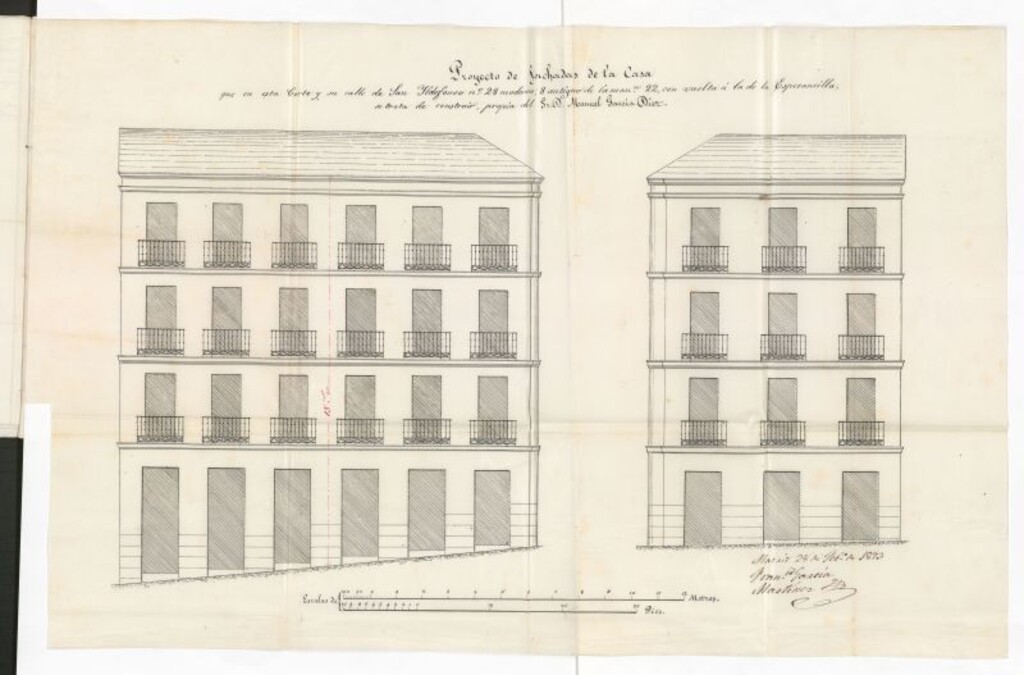 Proyecto de fachadas de la Casa
que en esta Corte y su calle de San Ildefonso nº 28 moderno, 8 antiguo de la manzª 22, con vuelta á la de la Esperancilla,
se trata de construir, propia del Sr. D. Manuel García Diez.
Escalas de
Metros.
Pies.
Madrid 24 de
de 18
García
Martinez